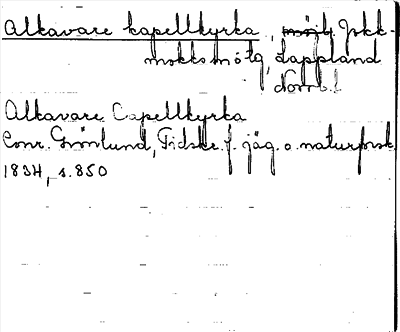 Alkavare kapellkyrka, Jokk-
mokks Lappland
Norrb.
Alkavare Capellkyrka
Conr. Grönlund, Tidskr. f. jäg. o. naturforsk.
1834, s. 850